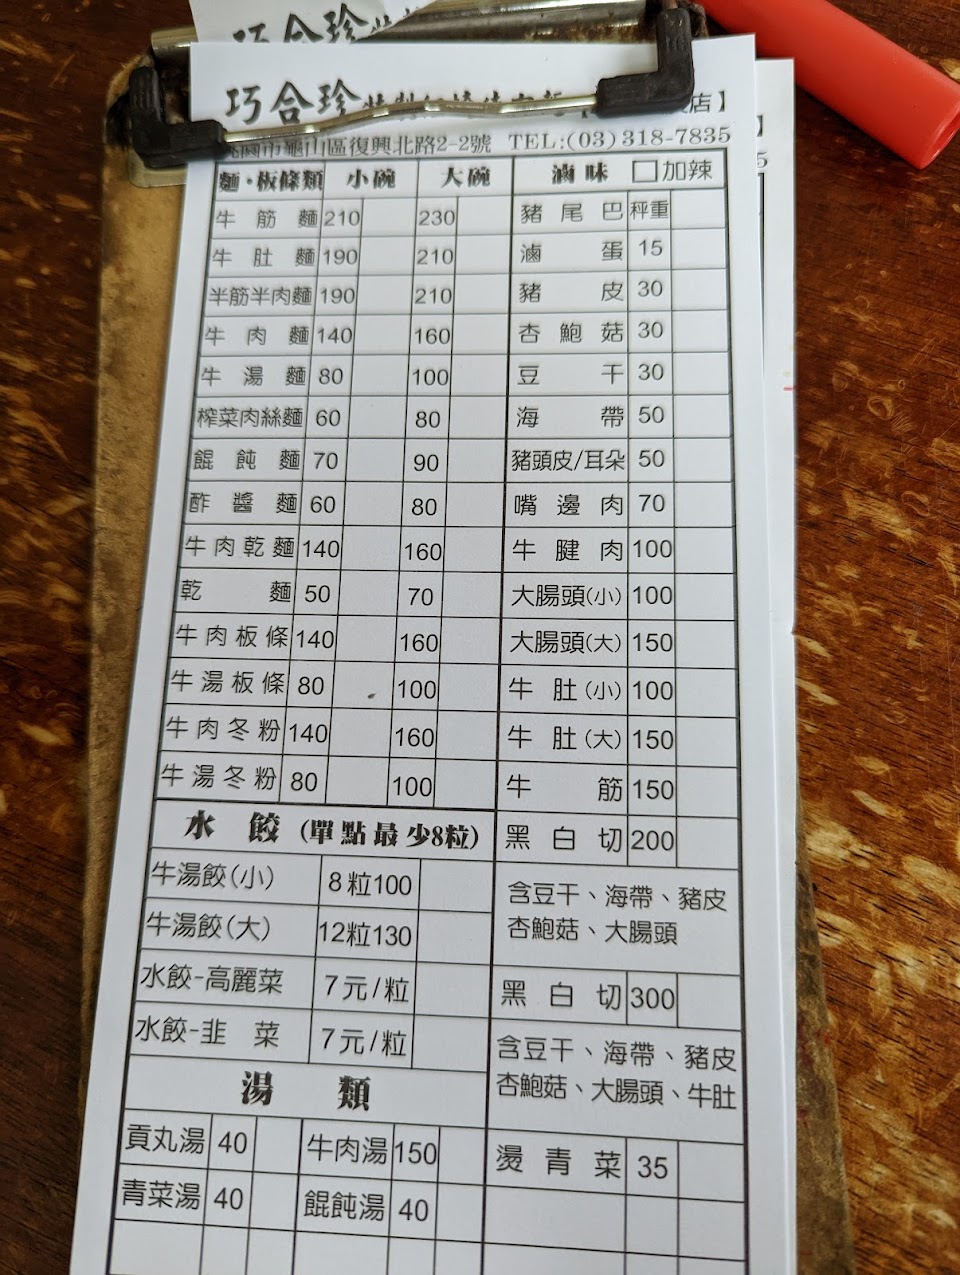 巧合珍
巧合珍
店】
】
5
桃園市龜山區復興北路2-2號 TEL:(03)318-7835
麵・板條類 小碗 大碗
牛筋麵 210 230
牛肚麵 190 210
半筋半肉麵 190 210
牛肉麵 140 160
牛湯麵 80 100
榨菜肉絲麵 60 80
餛飩麵 70 90
酢醬麵 60 80
牛肉乾麵 140 160
乾麵 50 70
牛肉板條 140 160
牛湯板條 80 100
牛肉冬粉 140 160
牛湯冬粉 80 100
水餃(單點最少8粒)
牛湯餃(小) 8粒100
牛湯餃(大) 12粒130
水餃-高麗菜 7元/粒
水餃-韭菜 7元/粒
湯類
貢丸湯 40 牛肉湯 150
青菜湯 40 餛飩湯 40
滷味 □加辣
豬尾巴 秤重
滷蛋 15
豬皮 30
杏鮑菇 30
豆干 30
海帶 50
豬頭皮/耳朵 50
嘴邊肉 70
牛腱肉 100
大腸頭(小) 100
大腸頭(大) 150
牛肚(小) 100
牛肚(大) 150
牛筋 150
黑白切 200
含豆干、海帶、豬皮
杏鮑菇、大腸頭
黑白切 300
含豆干、海帶、豬皮
杏鮑菇、大腸頭、牛肚
燙青菜 35